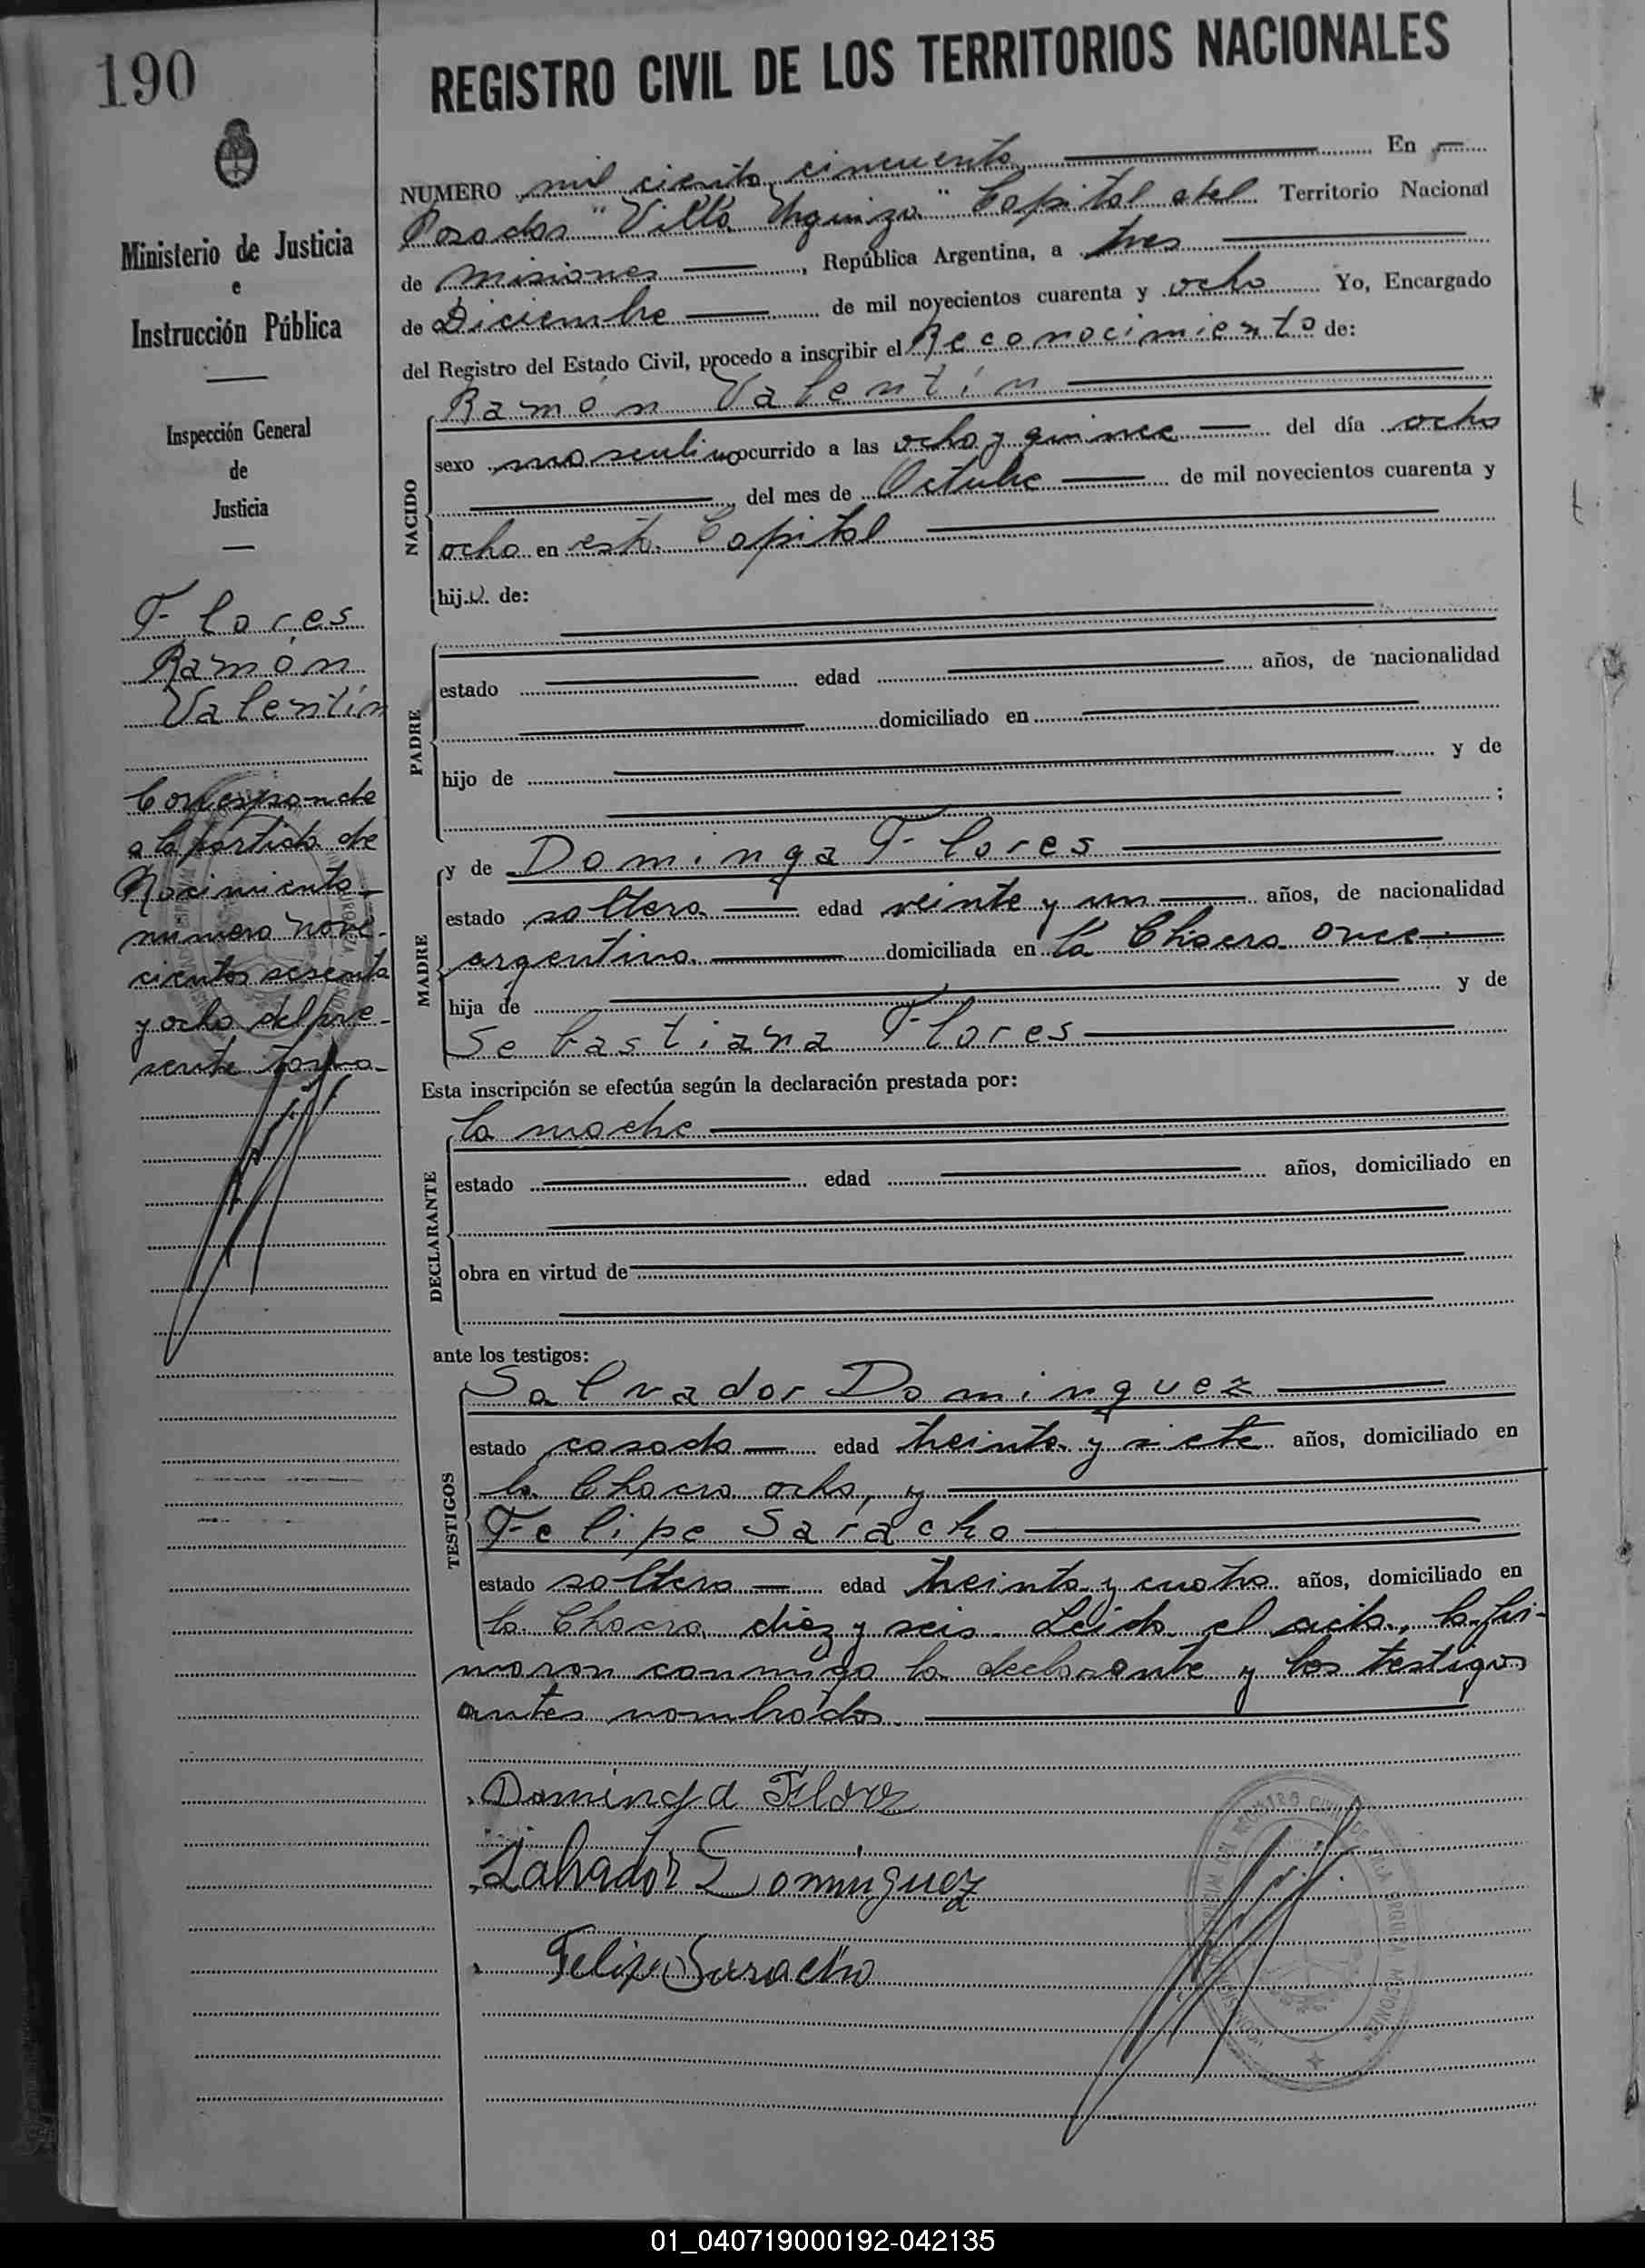 190
REGISTRO CIVIL DE LOS TERRITORIOS NACIONALES
Ministerio de Justicia
e
Instrucción Pública
Inspección General
de
Justicia
Flores
Ramón
Valentín
Corresponde
a la partida de
Nacimiento
numero nove-
cientos sesenta
y ocho del pre-
sente tomo.
NUMERO mil ciento cincuenta En
Posadas "Villa Urquiza" Capital del Territorio Nacional
de Misiones, República Argentina, a tres
de Diciembre de mil novecientos cuarenta y ocho Yo, Encargado
del Registro del Estado Civil, procedo a inscribir el Reconocimiento de:
Ramón Valentín
NACIDO
sexo masculino ocurrido a las ocho y quince del día ocho
del mes de Octubre de mil novecientos cuarenta y
ocho en esta Capital
hijo de:
PADRE
estado edad años, de nacionalidad
domiciliado en
hijo de y de
;
MADRE
y de Dominga Flores
estado soltera edad veinte y un años, de nacionalidad
argentina domiciliada en la Chacra once
hija de y de
Sebastiana Flores
Esta inscripción se efectúa según la declaración prestada por:
DECLARANTE
la madre
estado edad años, domiciliado en
obra en virtud de
ante los testigos:
TESTIGOS
Salvador Dominguez
estado casado edad treinta y siete años, domiciliado en
la Chacra ocho, y
Felipe Saracho
estado soltero edad treinta y cuatro años, domiciliado en
la Chacra diez y seis. Leida el acta, la fir-
maron conmigo la declarante y los testigos
antes nombrados.
Dominga Flores
Salvador Dominguez
Felipe Saracho
01_040719000192-042135